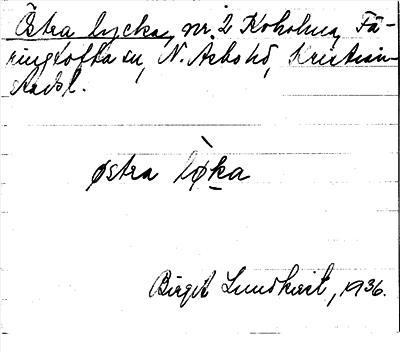 Östra lycka, nr. 2 Koholma, Fä-
ringtofta sn, N. Asbo hd, Kristian-
stads l.
østra lø̀ka
Birgit Lundkvist, 1936.